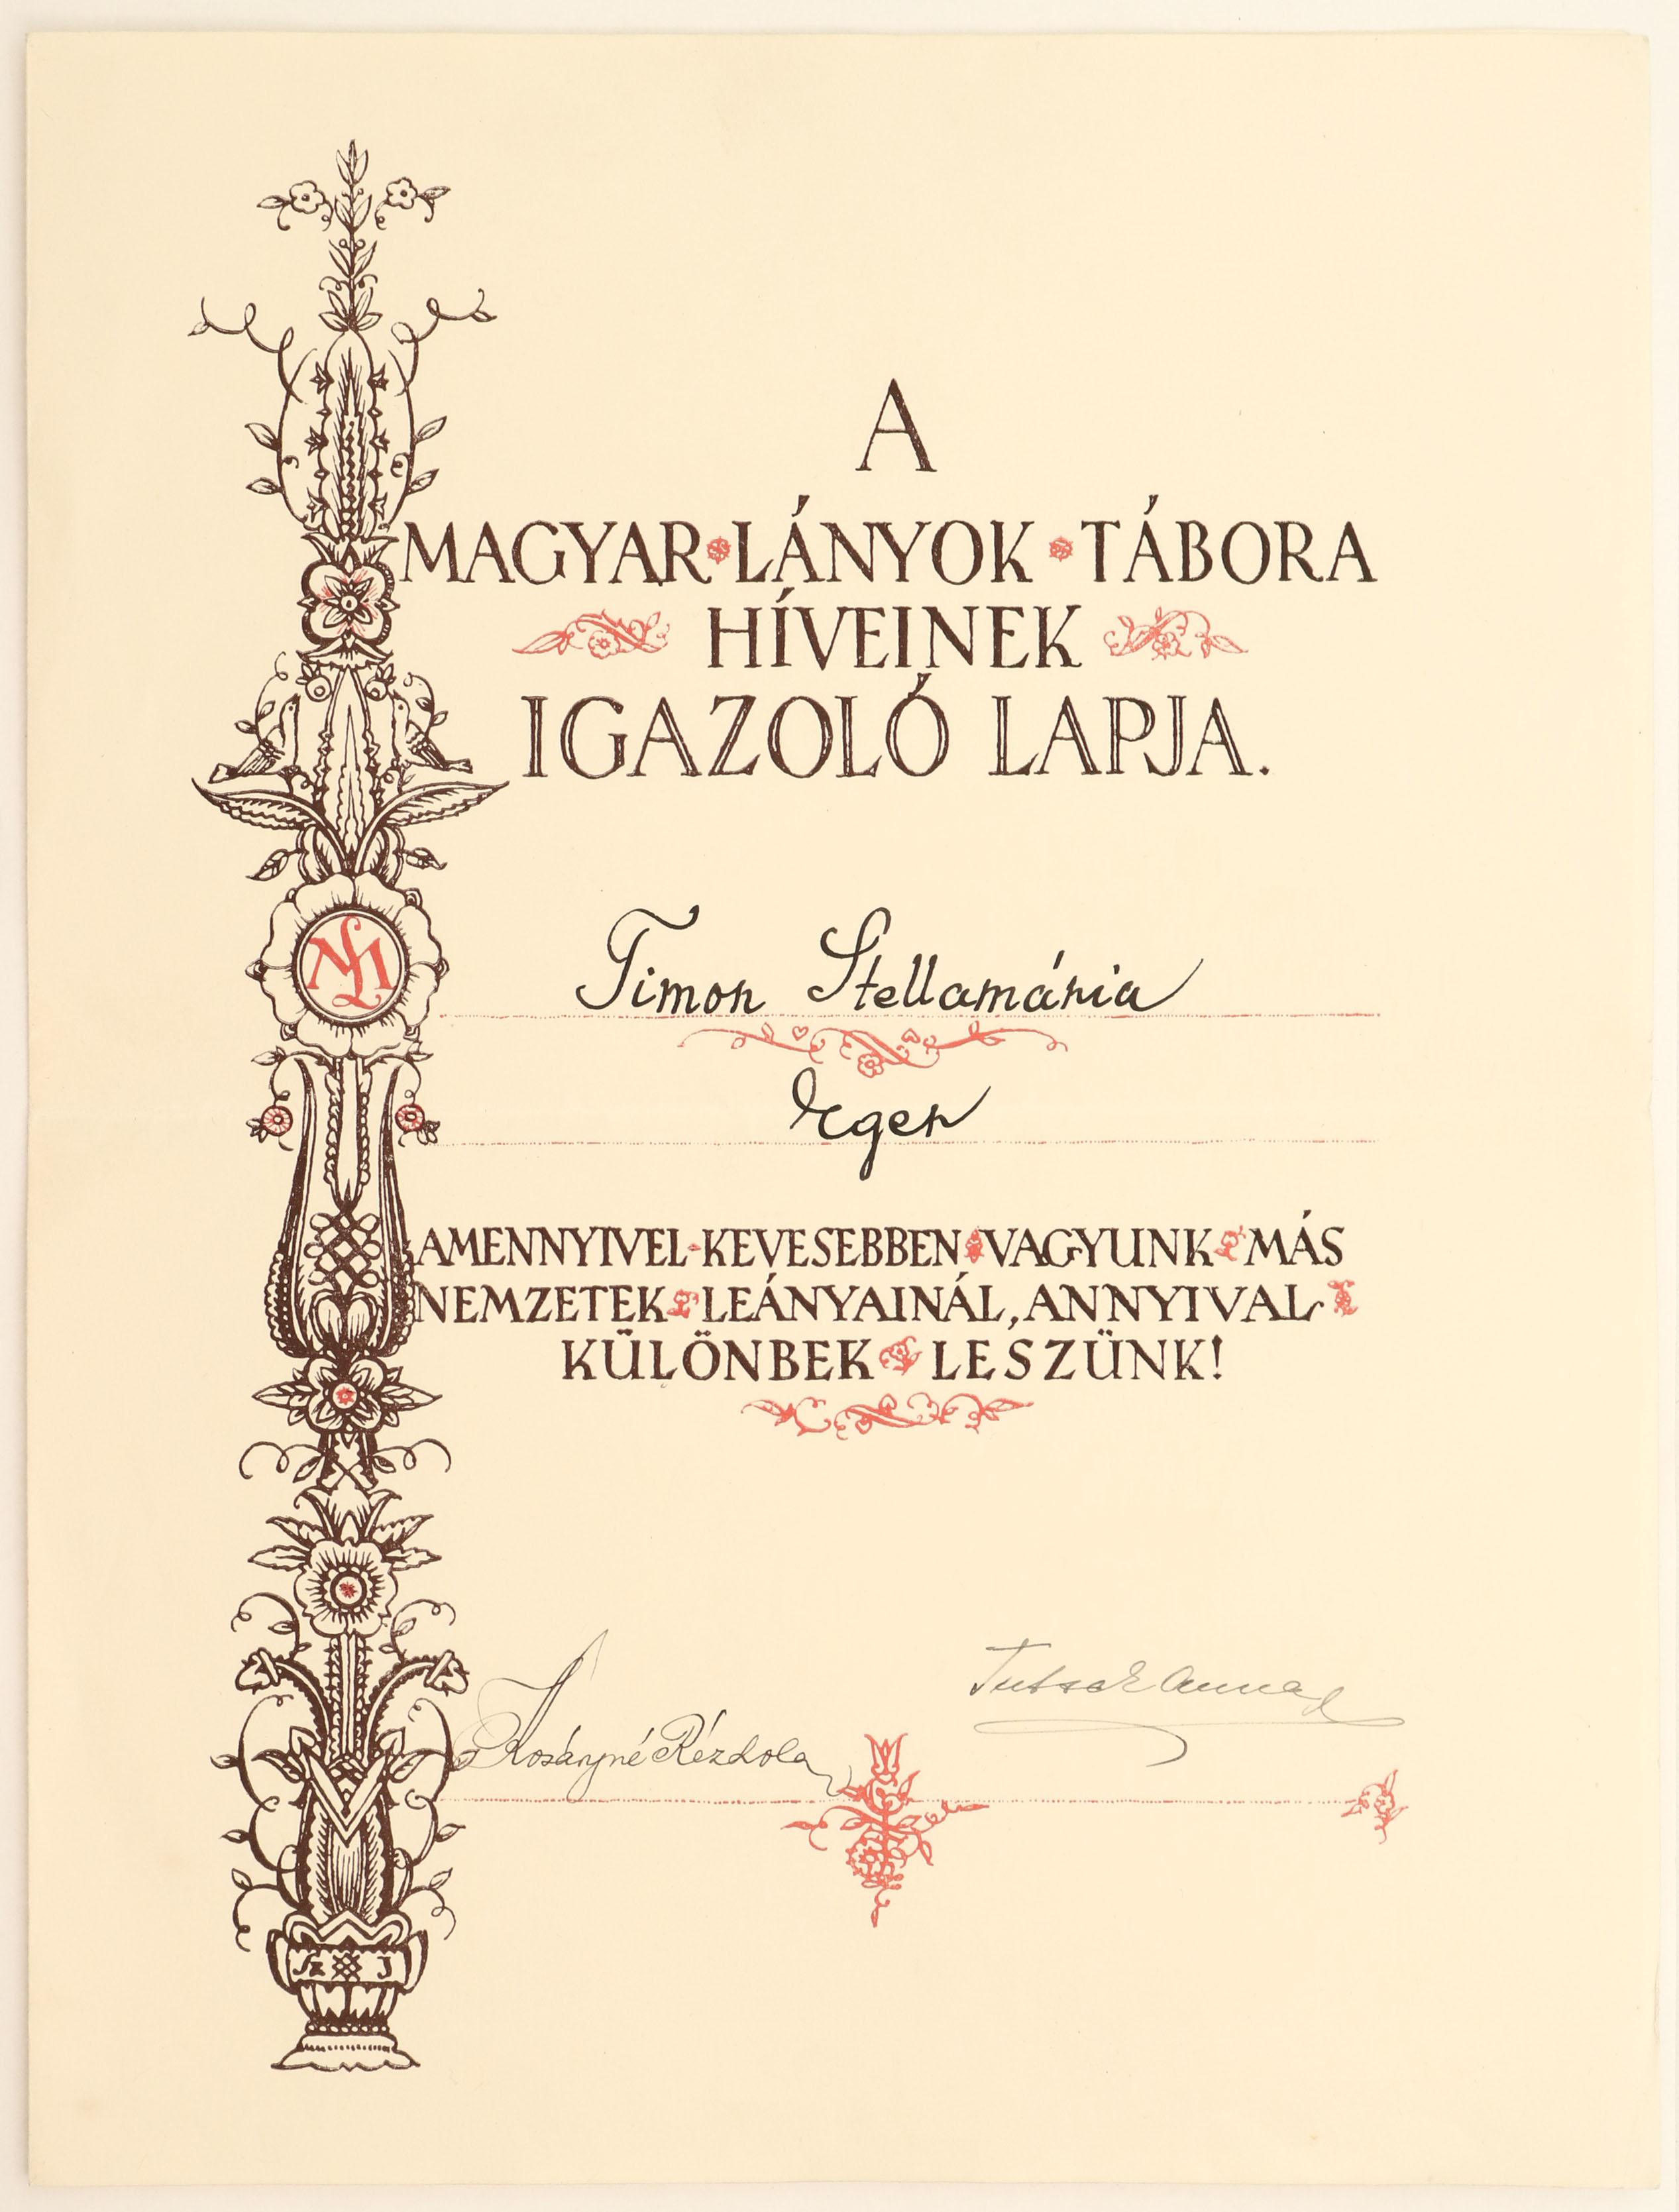 A
MAGYAR LÁNYOK TÁBORA
HÍVEINEK
IGAZOLÓ LAPJA.
Timon Stellamária
ML
Eger
AMENNYIVEL KEVESEBBEN VAGYUNK MÁS
NEMZETEK LEÁNYAINÁL, ANNYIVAL
KÜLÖNBEK LESZÜNK!
Tutsek Anna
Kosáryné Réz Lola
Sz J